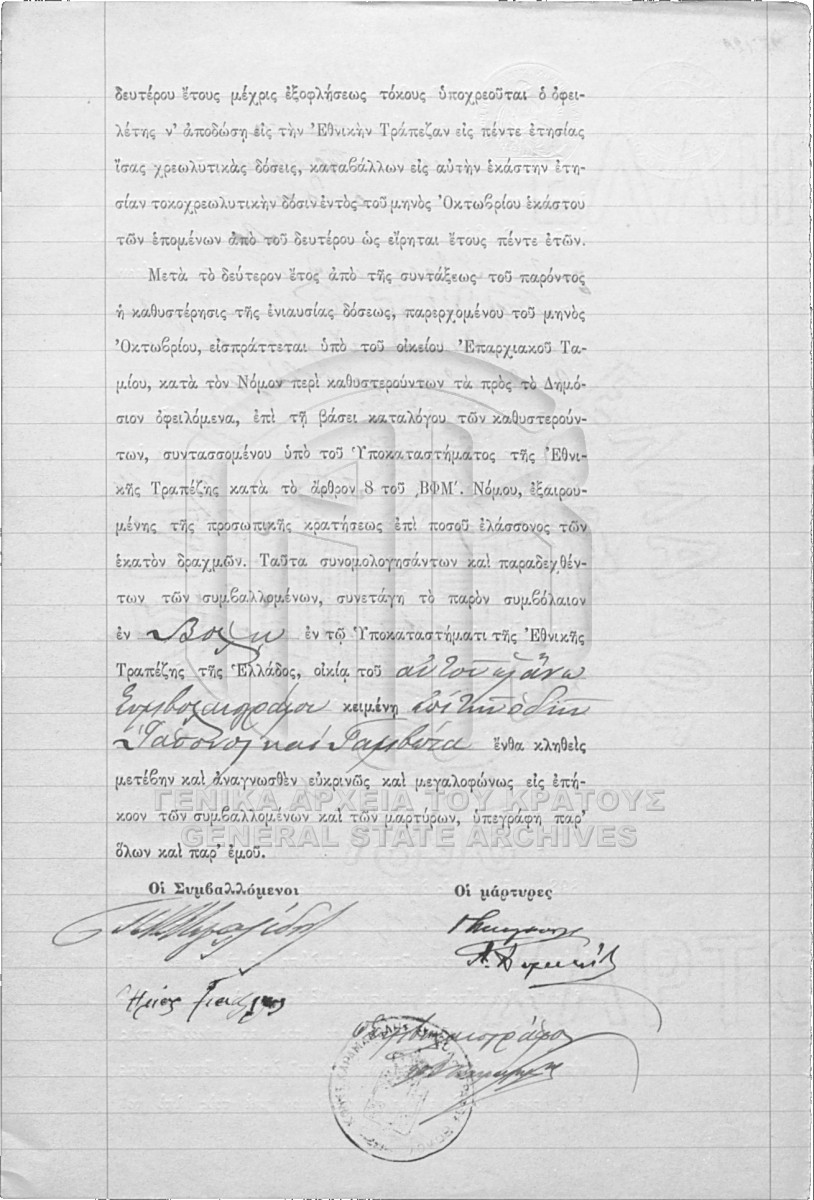 δευτέρου ἔτους μέχρις ἐξοφλήσεως τόκους ὑποχρεοῦται ὁ ὀφει-
λέτης ν' ἀποδώσῃ εἰς τὴν Ἐθνικὴν Τράπεζαν εἰς πέντε ἐτησίας
ἴσας χρεωλυτικὰς δόσεις, καταβάλλων εἰς αὐτὴν ἑκάστην ἐτη-
σίαν τοκοχρεωλυτικὴν δόσιν ἐντὸς τοῦ μηνὸς Ὀκτωβρίου ἑκάστου
τῶν ἑπομένων ἀπὸ τοῦ δευτέρου ὡς εἴρηται ἔτους πέντε ἐτῶν.
Μετὰ τὸ δεύτερον ἔτος ἀπὸ τῆς συντάξεως τοῦ παρόντος
ἡ καθυστέρησις τῆς ἐνιαυσίας δόσεως, παρερχομένου τοῦ μηνὸς
Ὀκτωβρίου, εἰσπράττεται ὑπὸ τοῦ οἰκείου Ἐπαρχιακοῦ Τα-
μίου, κατὰ τὸν Νόμον περὶ καθυστερούντων τὰ πρὸς τὸ Δημό-
σιον ὀφειλόμενα, ἐπὶ τῇ βάσει καταλόγου τῶν καθυστερούν-
των, συντασσομένου ὑπὸ τοῦ Ὑποκαταστήματος τῆς Ἐθνι-
κῆς Τραπέζης κατὰ τὸ ἄρθρον 8 τοῦ ͵ΒΦΜ΄. Νόμου, ἐξαιρου-
μένης τῆς προσωπικῆς κρατήσεως ἐπὶ ποσοῦ ἐλάσσονος τῶν
ἑκατὸν δραχμῶν. Ταῦτα συνομολογησάντων καὶ παραδεχθέν-
των τῶν συμβαλλομένων, συνετάγη τὸ παρὸν συμβόλαιον
ἐν Βόλῳ ἐν τῷ Ὑποκαταστήματι τῆς Ἐθνικῆς
Τραπέζης τῆς Ἑλλάδος, οἰκίᾳ τοῦ
Συμβολαιογράφου κειμένῃ ἐπὶ τῆς ὁδοῦ
Ἰάσονος καὶ Γαμβέτα ἔνθα κληθεὶς
μετέβην καὶ ἀναγνωσθὲν εὐκρινῶς καὶ μεγαλοφώνως εἰς ἐπή-
κοον τῶν συμβαλλομένων καὶ τῶν μαρτύρων, ὑπεγράφη παρ'
ὅλων καὶ παρ' ἐμοῦ.
ΓΕΝΙΚΑ ΑΡΧΕΙΑ ΤΟΥ ΚΡΑΤΟΥΣ
GENERAL STATE ARCHIVES
Οἱ Συμβαλλόμενοι Οἱ μάρτυρες